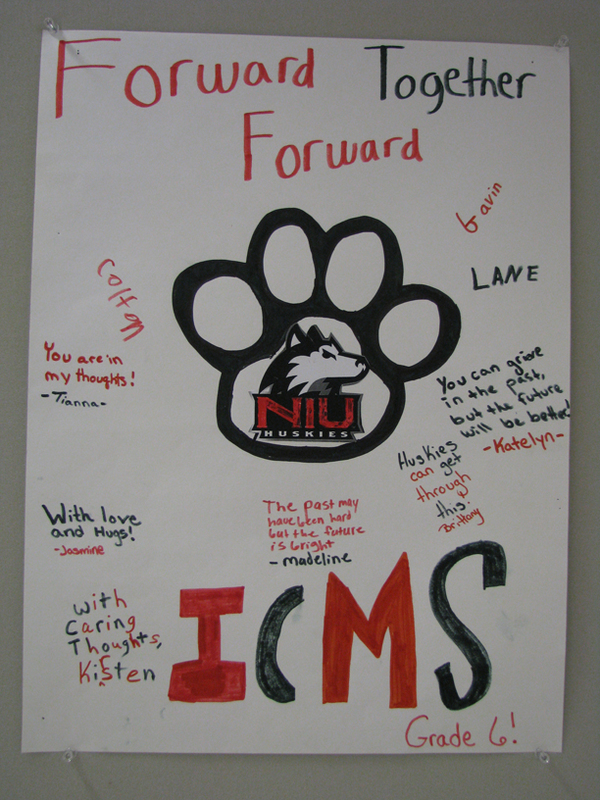 Forward Together
Forward
Gavin
LANE
Colton
You are in
my thoughts!
-Tianna-
NIU
HUSKIES
You can grieve
in the past,
but the future
will be better!
-Katelyn-
Huskies
can get
through
this.
Brittany
With love
and Hugs!
-Jasmine
The past may
have been hard
but the future
is bright
-madeline
with
Caring
Thoughts,
Kirsten
ICMS
Grade 6!